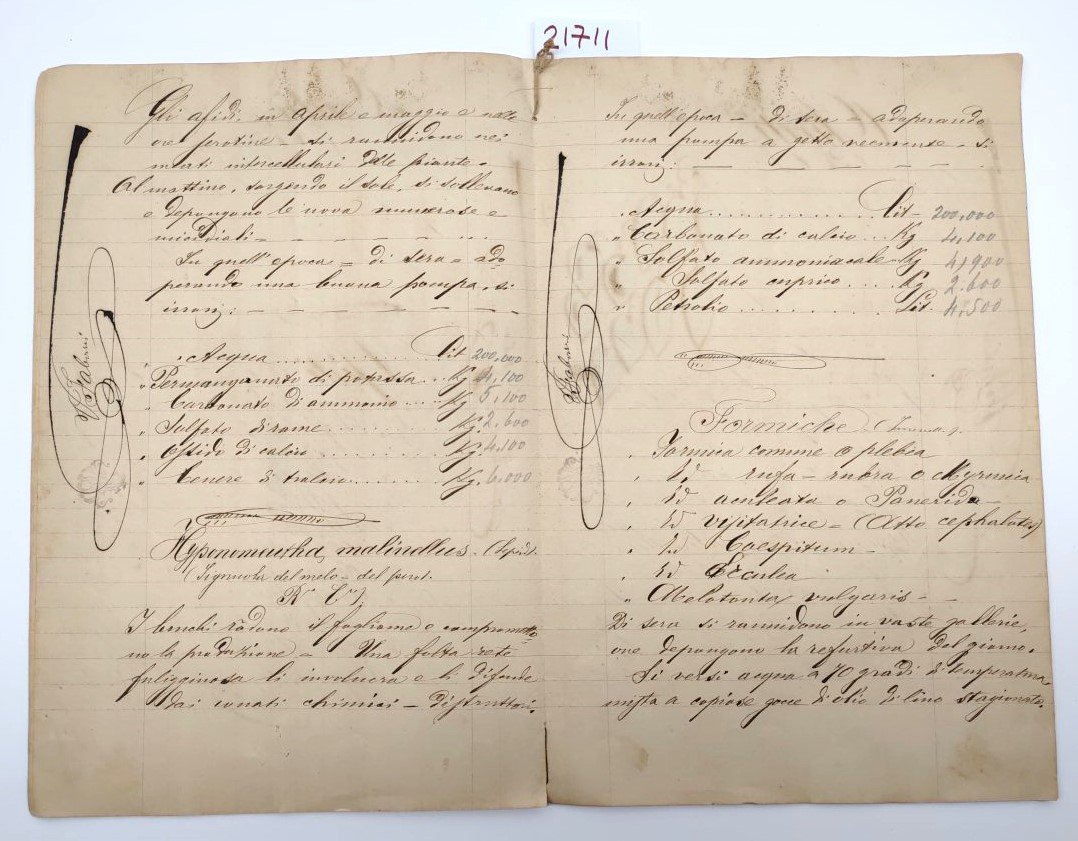 21711
Gli afidi, in aprile e maggio e nelle
ore serotine - si rannidano nei
meati intercellulari delle piante.
Al mattino, sorgendo il sole, si sollevano
e depongono le uova numerose e
micidiali - - - - -
In quell'epoca - di sera - ado
perando una buona pompa, si
irrori: - - - -
" Acqua .......... Lit 200,000
" Permanganato di potassa .. Kg 4,100
" Carbonato d'ammonio .... Kg. 5,100
" Solfato di rame ........ Kg. 2,600
" Ossido di calcio ....... Kg. 4,100
" Cenere di tralcio ...... Kg. 6,000
Hyponomeutha, malinellus. (Lepid.
(Tignuola del melo - del pero).
I bruchi rodono il fogliame e compromettо-
no la produzione - Una folta rete
fuligginosa li involucra e li difende
dai conati chimici - distruttori.
V. Fabriani
In quell'epoca - di sera - adoperando
una pompa a getto veemente - si
irrori: - - -
" Acqua .......... Lit - 200,000
" Carbonato di calcio ... Kg 4,100
" Solfato ammoniacale - Kg 4,900
" Solfato cuprico ..... Kg 2.600
" Petrolio .......... Lit. 4,500
Formiche
" Formica comune o plebea
" Id rufa - rubra o Myrmica
" Id aculeata o Panerida -
" Id visitatrice - (Atto cephalotes)
" Id Caespitum -
" Id Erculea
" Melolonta vulgaris - -
Di sera si rannidano in vaste gallerie,
ove depongono la refurtiva del giorno.
Si versi acqua a 70 gradi di temperatura
mista a copiose gocce d'olio di lino stagionato.